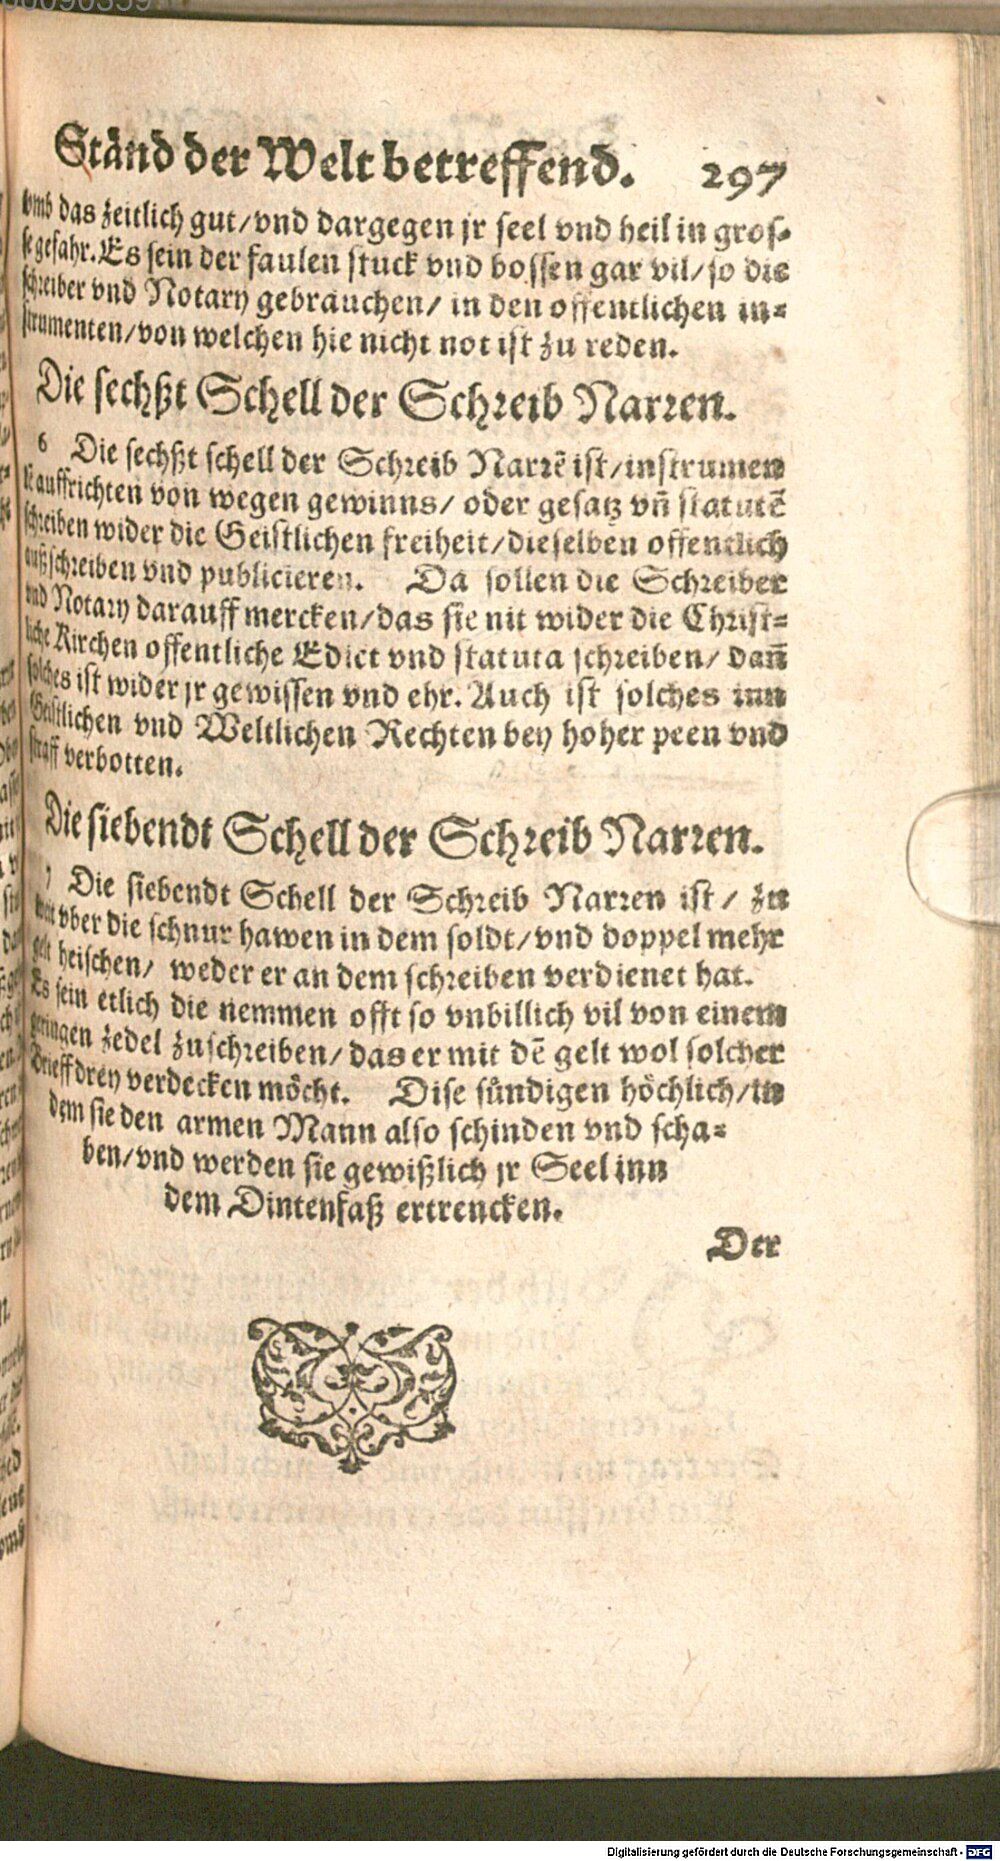 Ständ der Welt betreffend. 297
vmb das zeitlich gut/vnd dargegen jr seel vnd heil in gros-
se gefahr. Es sein der faulen stuck vnd bossen gar vil/so die
schreiber vnd Notary gebrauchen/ in den offentlichen in-
strumenten/von welchen hie nicht not ist zu reden.
Die sechßt Schell der Schreib Narren.
6 Die sechßt schell der Schreib Narrē ist/instrumen
te auffrichten von wegen gewinns/ oder gesatz vñ statutē
schreiben wider die Geistlichen freiheit/dieselben offentlich
außschreiben vnd publicieren. Da sollen die Schreiber
vnd Notary darauff mercken/das sie nit wider die Christ-
liche Kirchen offentliche Edict vnd statuta schreiben/ dañ
solches ist wider jr gewissen vnd ehr. Auch ist solches inn
Geistlichen vnd Weltlichen Rechten bey hoher peen vnd
straff verbotten.
Die siebendt Schell der Schreib Narren.
7 Die siebendt Schell der Schreib Narren ist/ zu
weit vber die schnur hawen in dem soldt/vnd doppel mehr
gelt heischen/ weder er an dem schreiben verdienet hat.
Es sein etlich die nemmen offt so vnbillich vil von einem
geringen zedel zuschreiben/das er mit dē gelt wol solcher
brieff drey verdecken möcht. Dise sündigen höchlich/in
dem sie den armen Mann also schinden vnd scha-
ben/vnd werden sie gewißlich jr Seel inn
dem Dintenfaß ertrencken.
Der
Digitalisierung gefördert durch die Deutsche Forschungsgemeinschaft - DFG